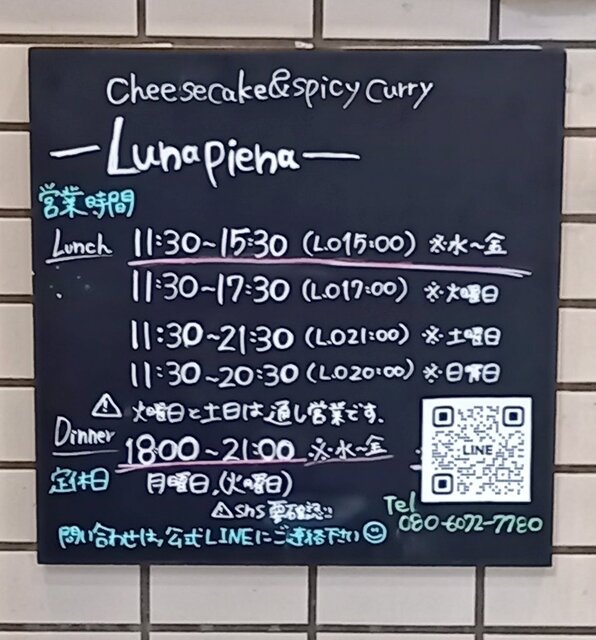 Cheesecake&spicy curry
—Lunapiena—
営業時間
Lunch 11:30~15:30 (L.O15:00) ※水~金
11:30~17:30 (L.O17:00) ※火曜日
11:30~21:30 (L.O21:00) ※土曜日
11:30~20:30 (L.O20:00) ※日曜日
⚠ 火曜日と土日は通し営業です。
Dinner 18:00~21:00 ※水~金
LINE
定休日 月曜日,(火曜日)
⚠sns要確認!!
Tel 080-6072-7780
問い合わせは,公式LINEにご連絡下さい☺